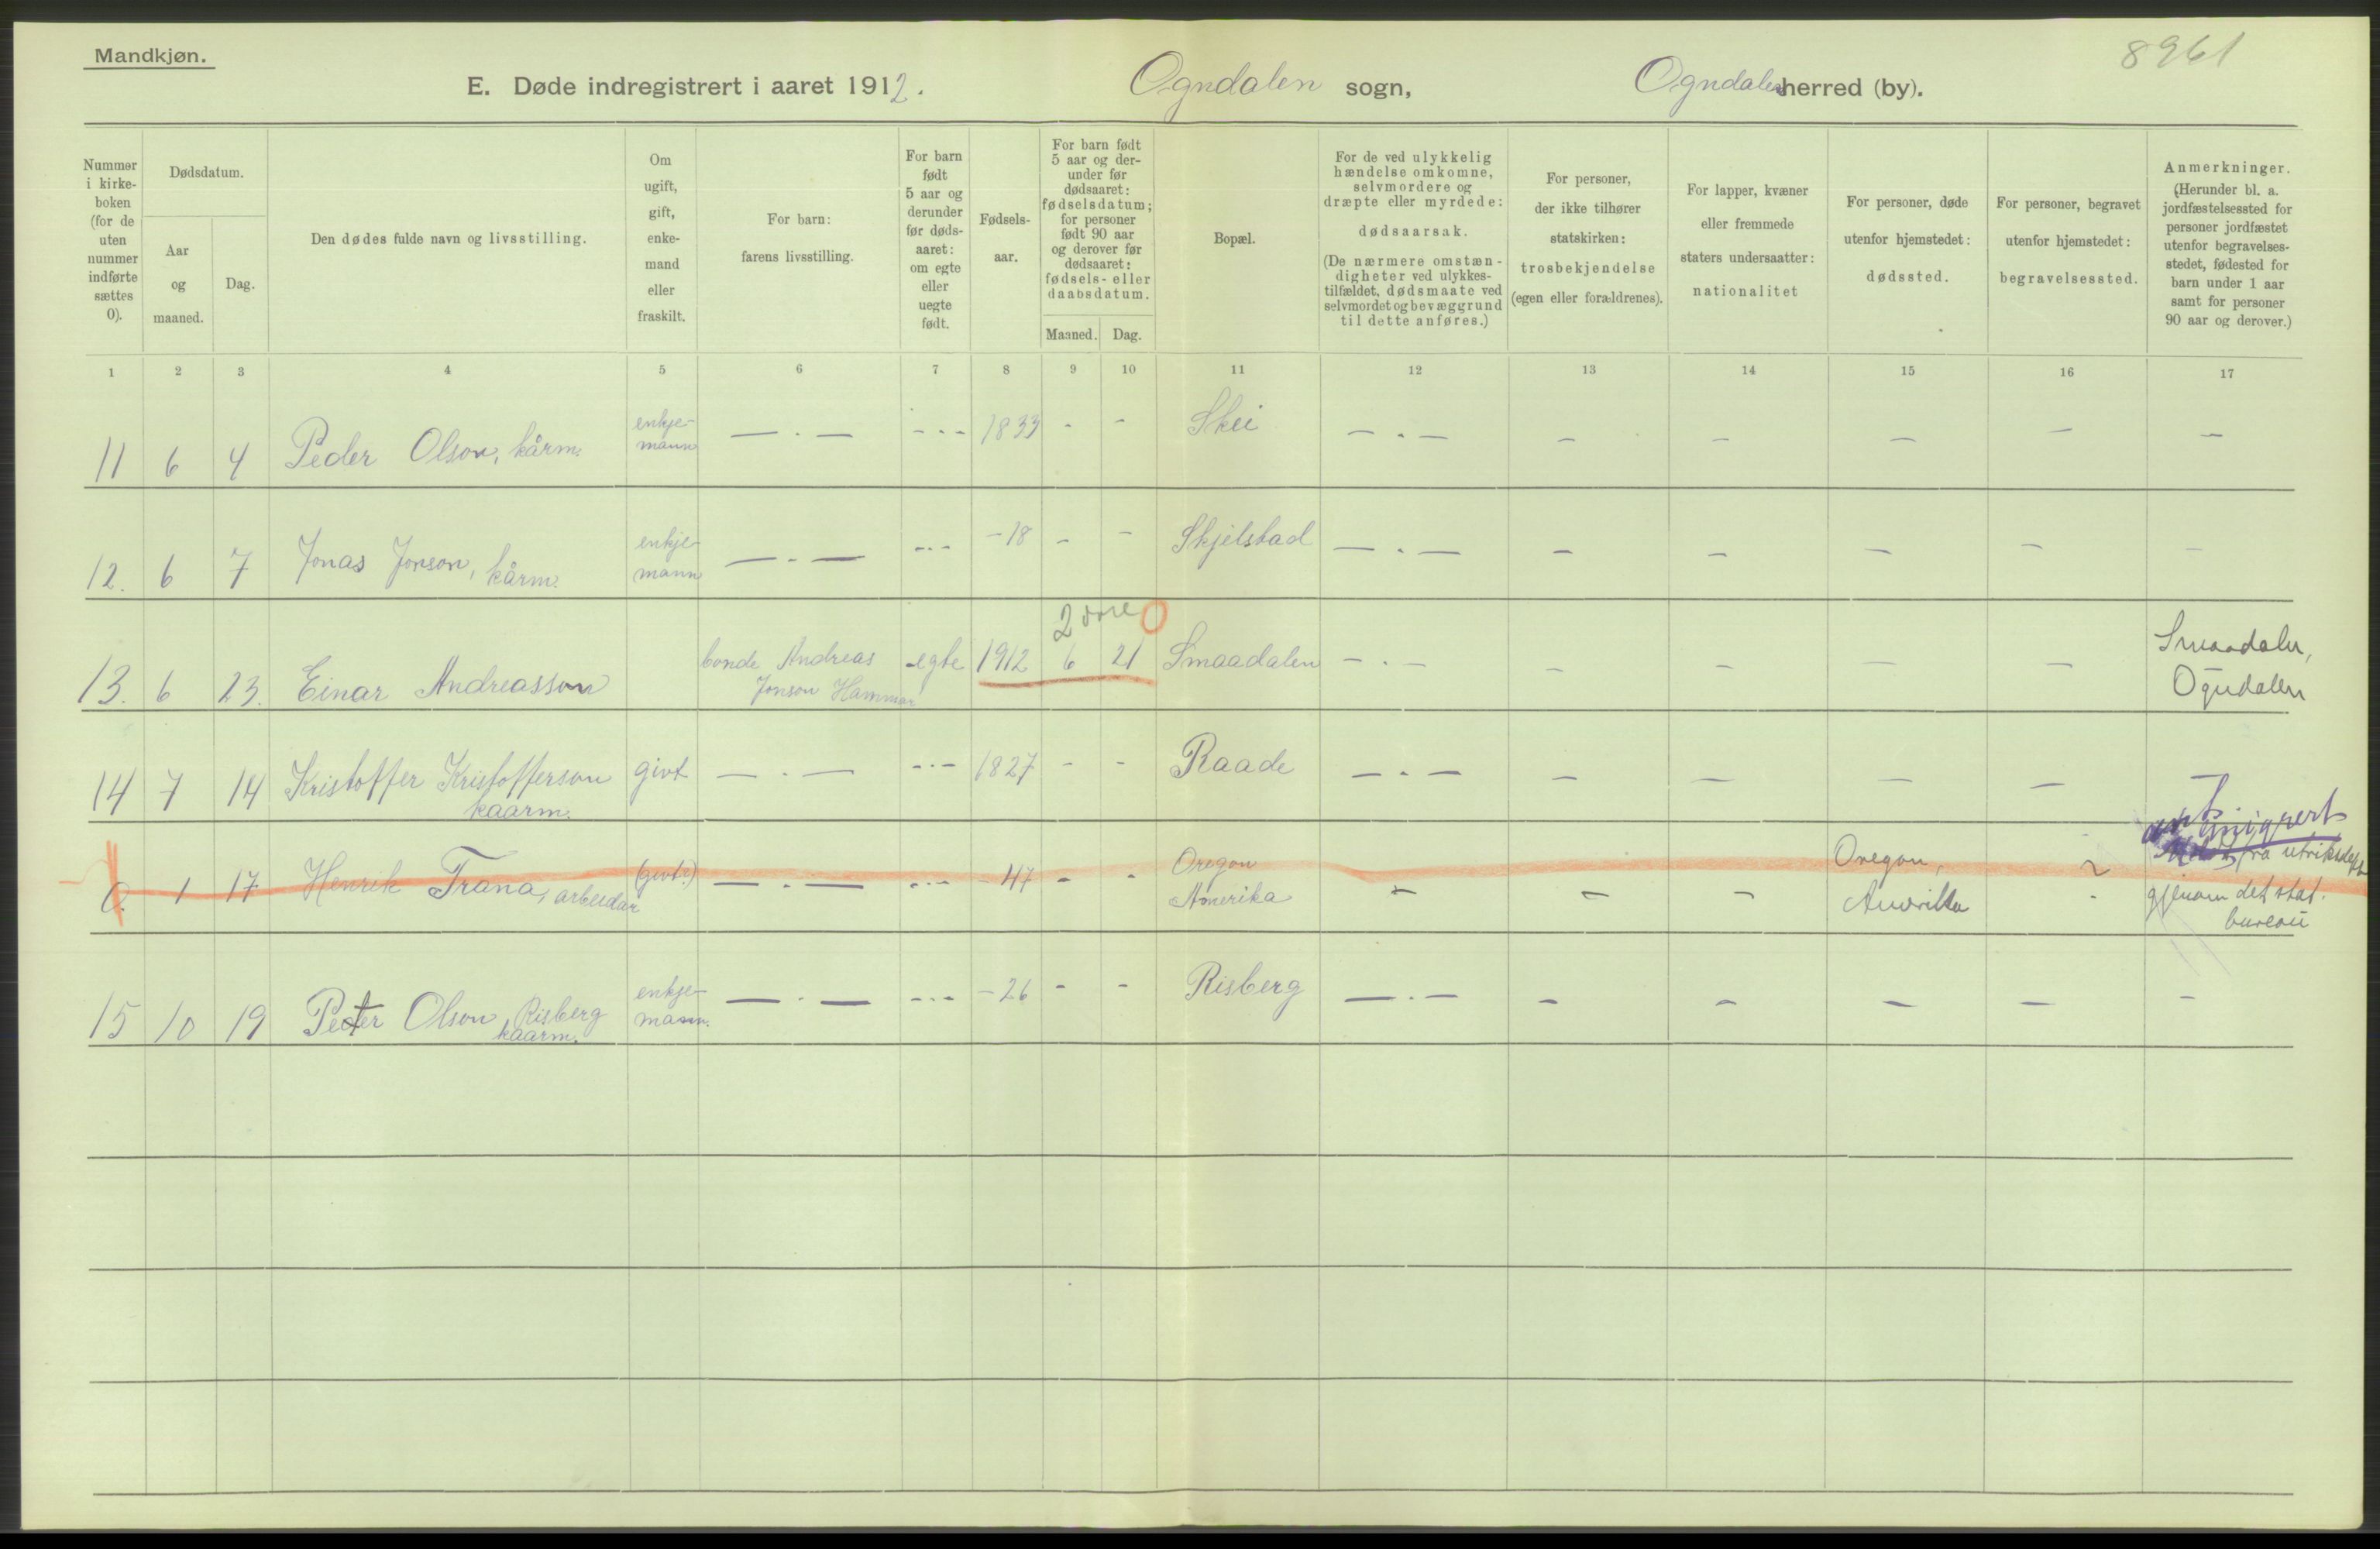 Mandkjøn.
8961
E. Døde indregistrert i aaret 1912. Ogndalen sogn, Ogndalen herred (by).
Nummer i kirke- boken (for de uten nummer indførte sættes 0).
Dødsdatum.
Aar og maaned.
Dag.
Den dødes fulde navn og livsstilling.
Om ugift, gift, enke- mand eller fraskilt.
For barn: farens livsstilling.
For barn født 5 aar og derunder før døds- aaret: om egte eller uegte født.
Fødsels- aar.
For barn født 5 aar og der- under før dødsaaret: fødselsdatum; for personer født 90 aar og derover før dødsaaret: fødsels- eller daabsdatum.
Maaned. Dag.
Bopæl.
For de ved ulykkelig hændelse omkomne, selvmordere og dræpte eller myrdede: dødsaarsak. (De nærmere omstæn- digheter ved ulykkes- tilfældet, dødsmaate ved selvmordet og bevæggrund til dette anføres.)
For personer, der ikke tilhører statskirken: trosbekjendelse (egen eller forældrenes).
For lapper, kvæner eller fremmede staters undersaatter: nationalitet
For personer, døde utenfor hjemstedet: dødssted.
For personer, begravet utenfor hjemstedet: begravelsessted.
Anmerkninger. (Herunder bl. a. jordfæstelsessted for personer jordfæstet utenfor begravelses- stedet, fødested for barn under 1 aar samt for personer 90 aar og derover.)
1 2 3 4 5 6 7 8 9 10 11 12 13 14 15 16 17
11 6 4 Peder Olson, kårm. enkje- mann — . — - - - 1833 - - Skei — . — — — — — —
12. 6 7 Jonas Jonson, kårm. enkje- mann — . — - - - -18 - - Skjelstad — . — — — — — —
2 dage 0
13. 6 23. Einar Andreasson bonde Andreas Jonson Hammer egte 1912 6 21 Smaadalen — . — — — — — Smaadalen, Ogndalen
14 7 14 Kristoffer Kristofferson kaarm. givt — . — - - - 1827 - - Raade — . — — — — — —
0. 1 17 Henrik Trana, arbeidar (givt?) — . — - - - -47 - - Oregon Amerika - - - Oregon, Amerika - emigrert fra utriksdept gjenom det stat. bureau
15 10 19 Peter Olson Risberg kaarm. enkje- mann. — . — - - - -26 - - Risberg — . — — — — — —